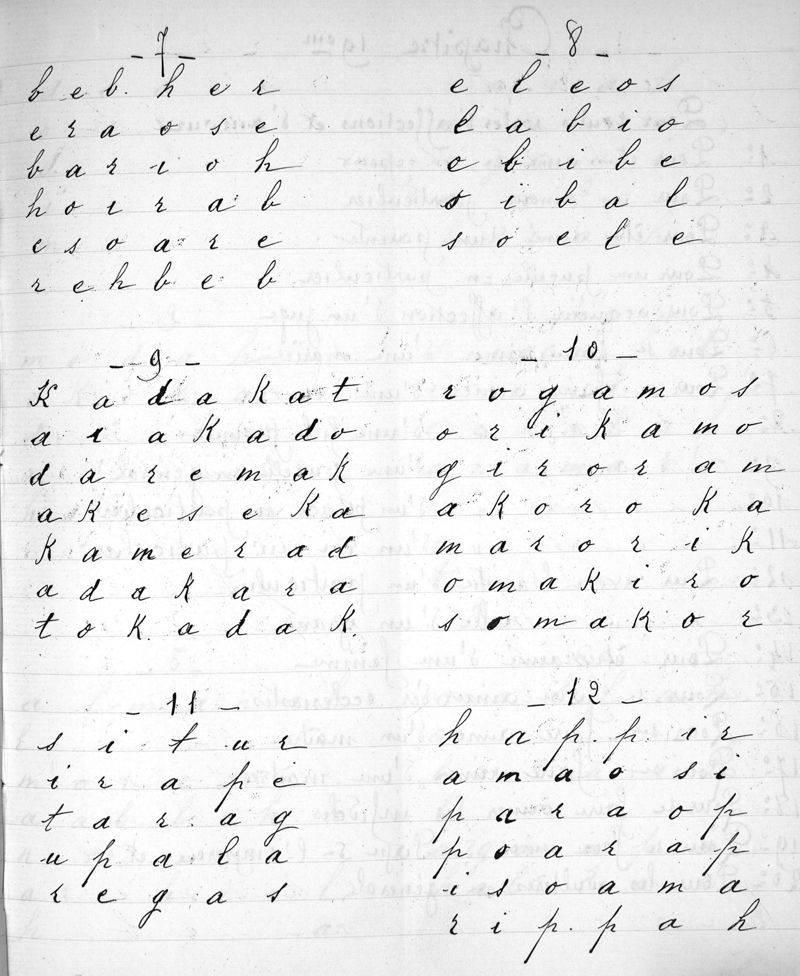 - 7 -
b e b. h e r
e r a o s e
b a r i o h
h o i r a b
e s o a r e
r e h b e b
- 8 -
e l e o s
l a b i o
e b i b e
o i b a l
s o e l e
- 9 -
K a d a K a t
a r a K a d o
d a r e m a K
a K e s e K a
K a m e r a d
a d a K a r a
t o K a d a K.
- 10 -
r o g a m o s
o r i K a m o
g i r o r a m
a K o r o K a
m a r o r i K
o m a K i r o
s o m a K o r
- 11 -
s i t u r
i r a p e
t a r a g
u p a l a
r e g a s
- 12 -
h a p p i r
a m a o s i
p a r a o p
p o a r a p
i s o a m a
r i p p a h